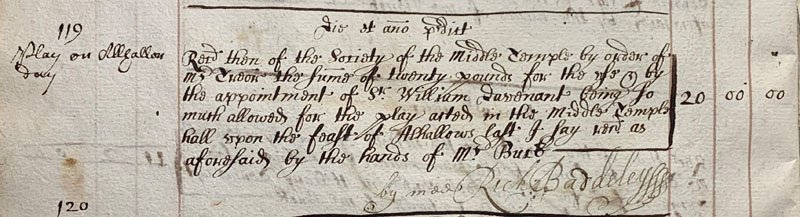 119
Play on Allhallon
day
die et año prdict
Recd then of the Society of the Middle Temple by order of
Mr Treōr the sume of twenty pounds for the use & by
the appointment of Sr. William Davenant being so
much allowed for the play acted in the Middle Temple
hall upon the feast of Alhallows last I say recd as
aforesaid by the hands of Mr
20 00 00
by mee Rich: Baddeley
120